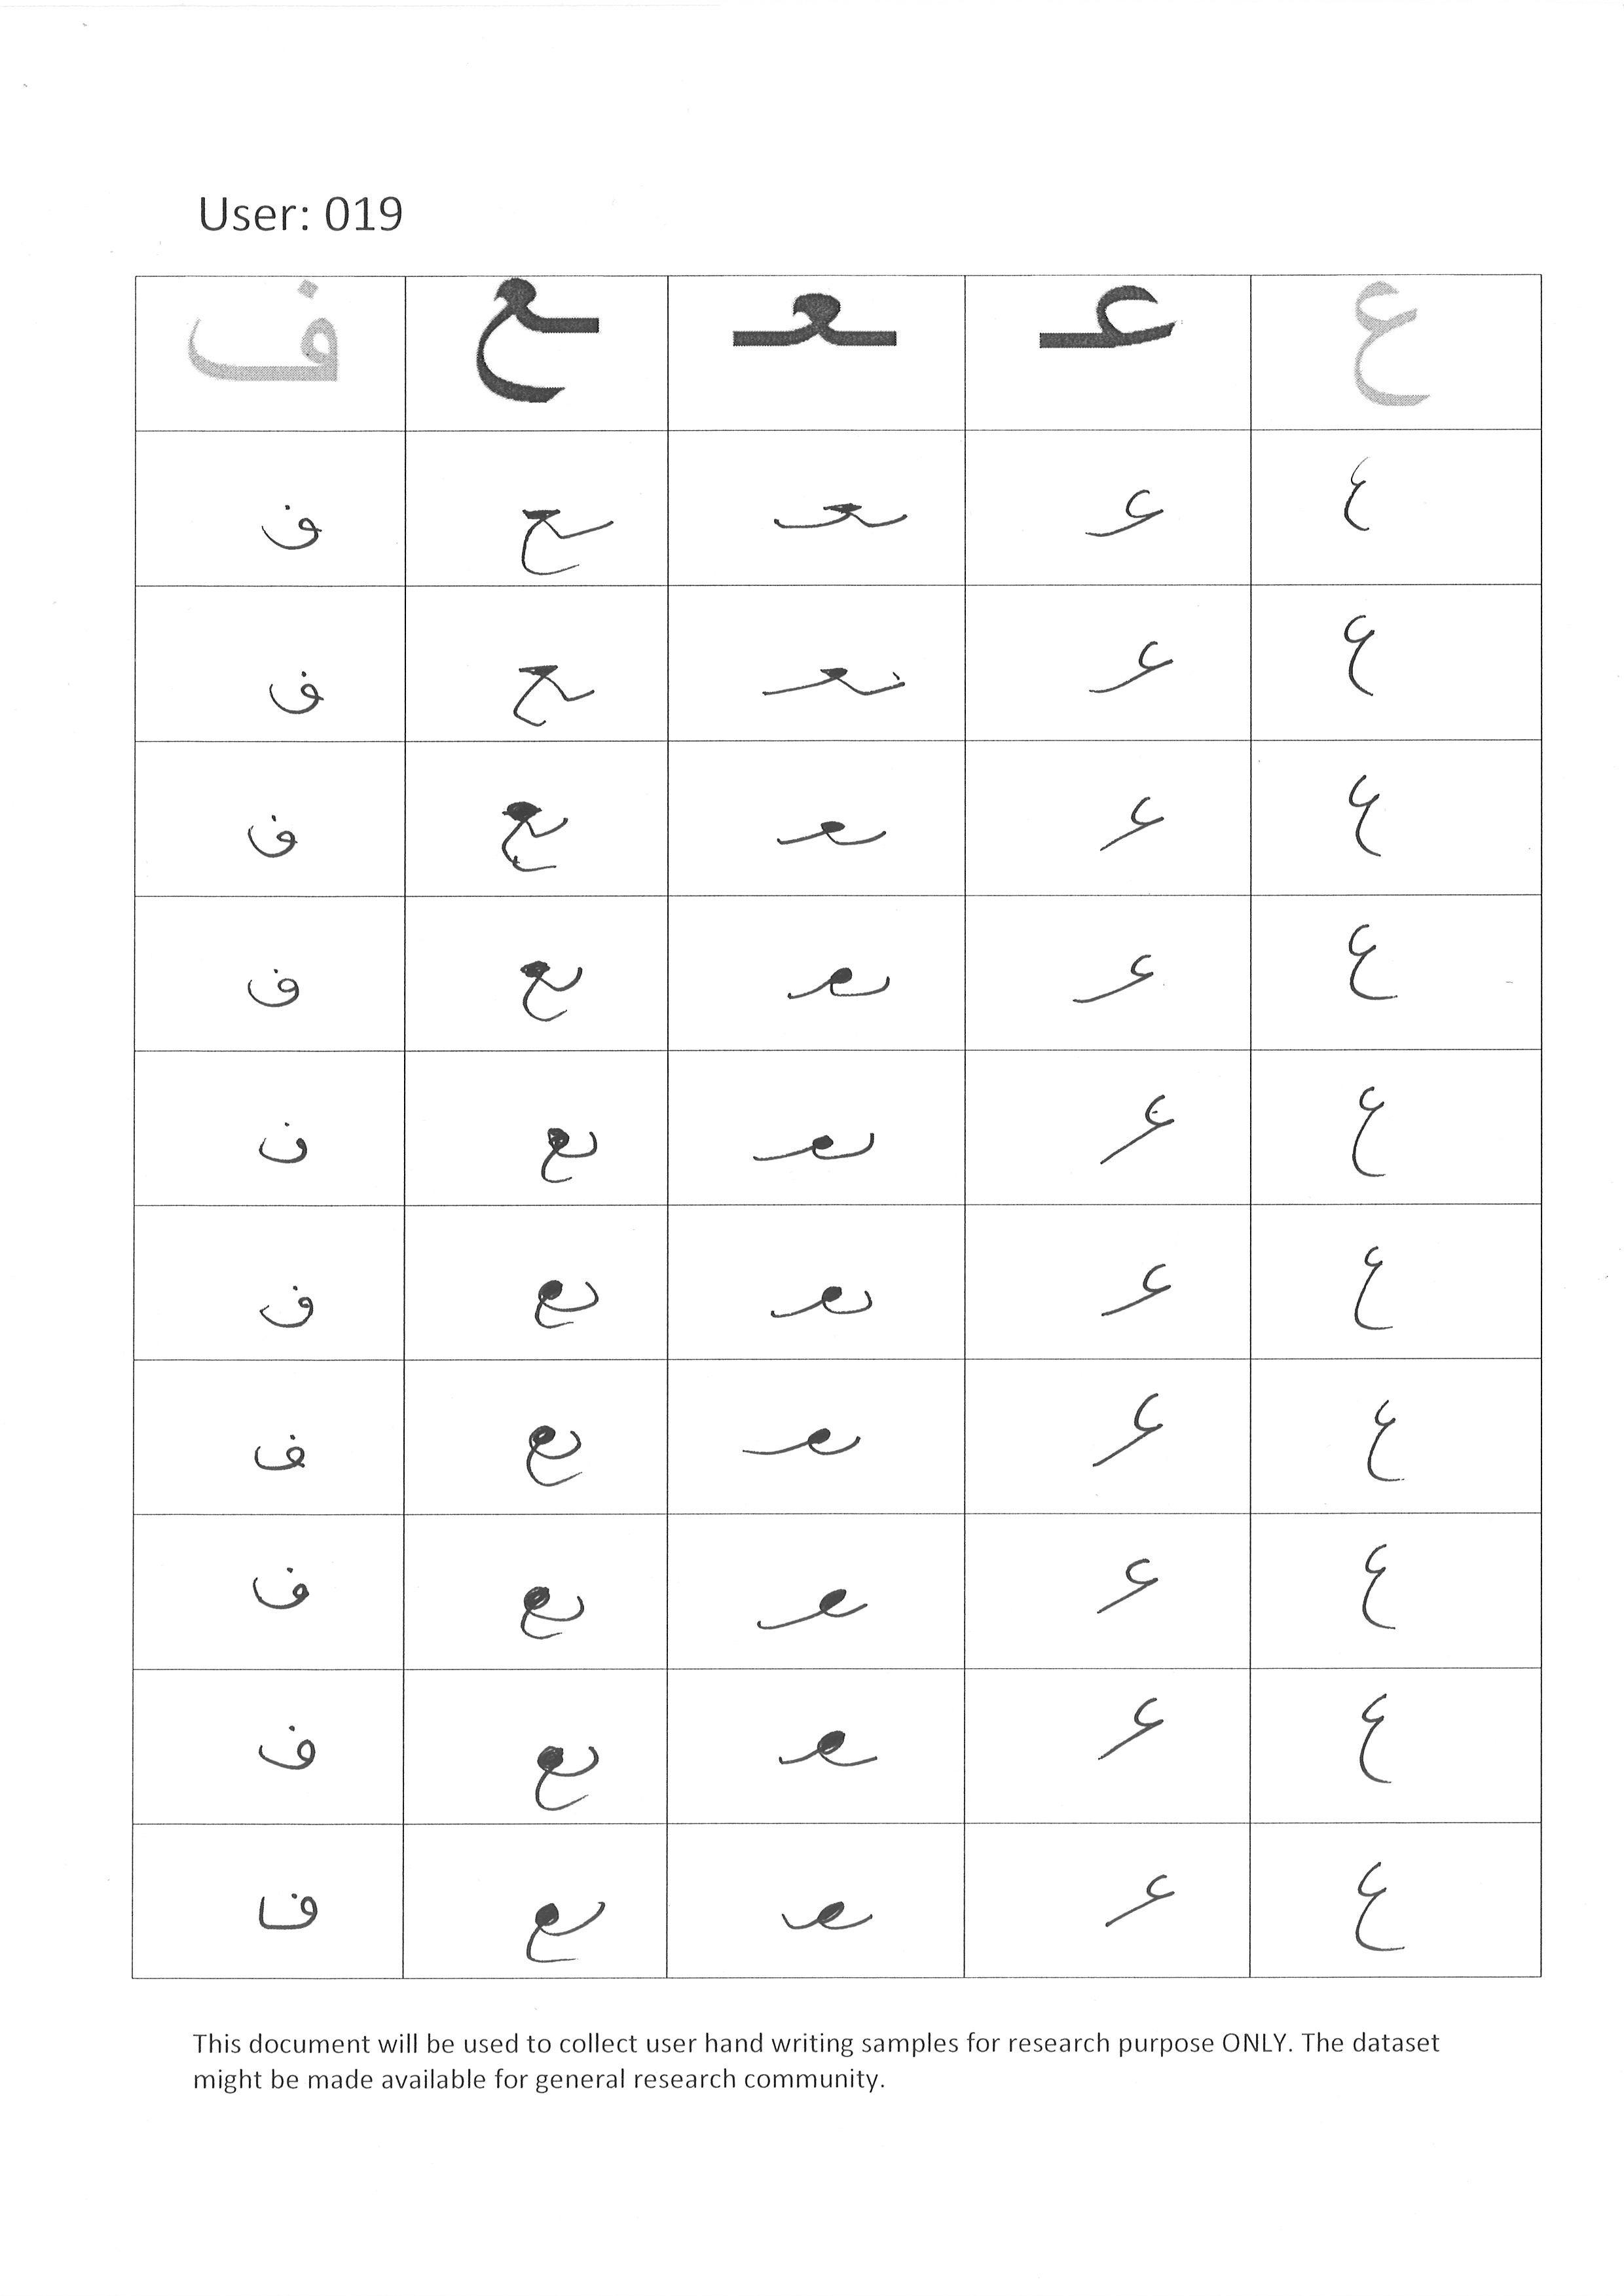 User: 019
ع عـ ـعـ ـع ف
ع عـ ـعـ ـع ف
ع عـ ـعـ ـع ف
ع عـ ـعـ ـع ف
ع عـ ـعـ ـع ف
ع عـ ـعـ ـع ف
ع عـ ـعـ ـع ف
ع عـ ـعـ ـع ف
ع عـ ـعـ ـع ف
ع عـ ـعـ ـع ف
ع عـ ـعـ ـع ف
This document will be used to collect user hand writing samples for research purpose ONLY. The dataset
might be made available for general research community.